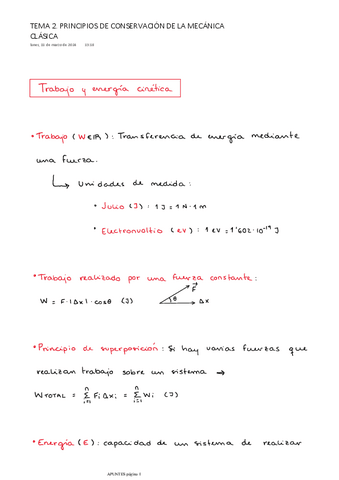 TEMA 2. PRINCIPIOS DE CONSERVACIÓN DE LA MECÁNICA
CLÁSICA
Trabajo y energía cinética
* Trabajo (W∈ℝ) : Transferencia de energía mediante
una fuerza.
↳ Unidades de medida :
* Julio (J) : 1 J = 1 N · 1 m
* Electronvoltio (eV) : 1 eV = 1'602 · 10⁻¹⁹ J
* Trabajo realizado por una fuerza constante :
W = F · |Δx| · cosθ (J) F⃗ θ Δx
* Principio de superposición : Si hay varias fuerzas que
realizan trabajo sobre un sistema →
WTOTAL = Σⁿᵢ₌₁ Fᵢ Δxᵢ = Σⁿᵢ₌₁ Wᵢ (J)
* Energía (E) : capacidad de un sistema de realizar